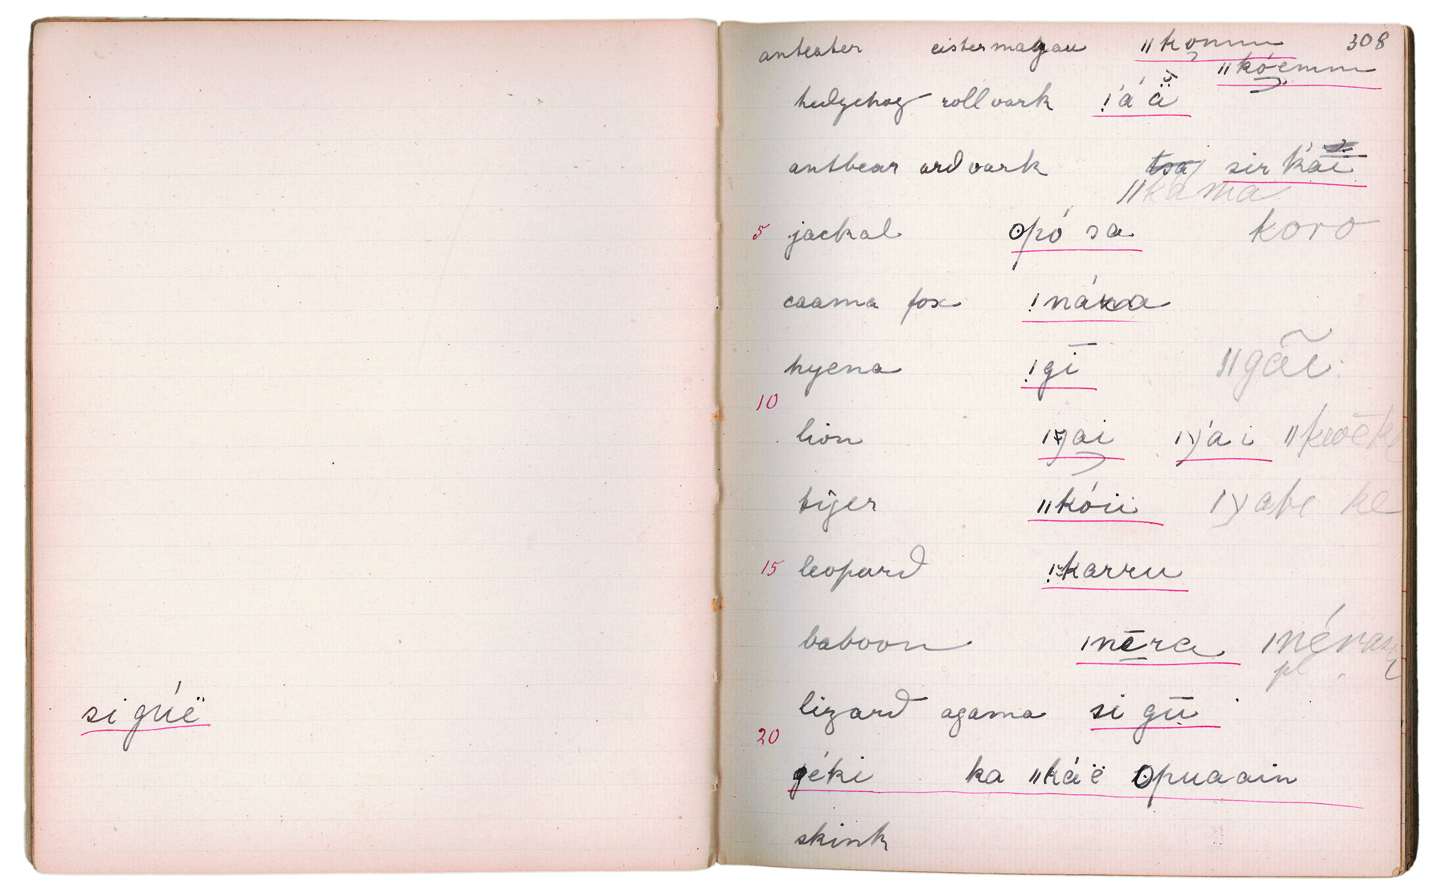 si gúë
308
anteater eistermagau ǁkomm
ǁkóemm
hedgehog rollvark ǃáä
antbear ardvark tsa sir kai
ǁkama
5 jackal ʘpó sa koro
caama fox ǃnáxa
hyena ǃgī ǁgãi
10
lion ǀɣai ǀɣ'ai
tiger ǁkóü ǀɣabe ke
15 leopard ǃkarru
baboon ǀnēra ǀnéra
pl.
lizard agama si gū
20
géki ka ǁkáë ʘpuaain
skink